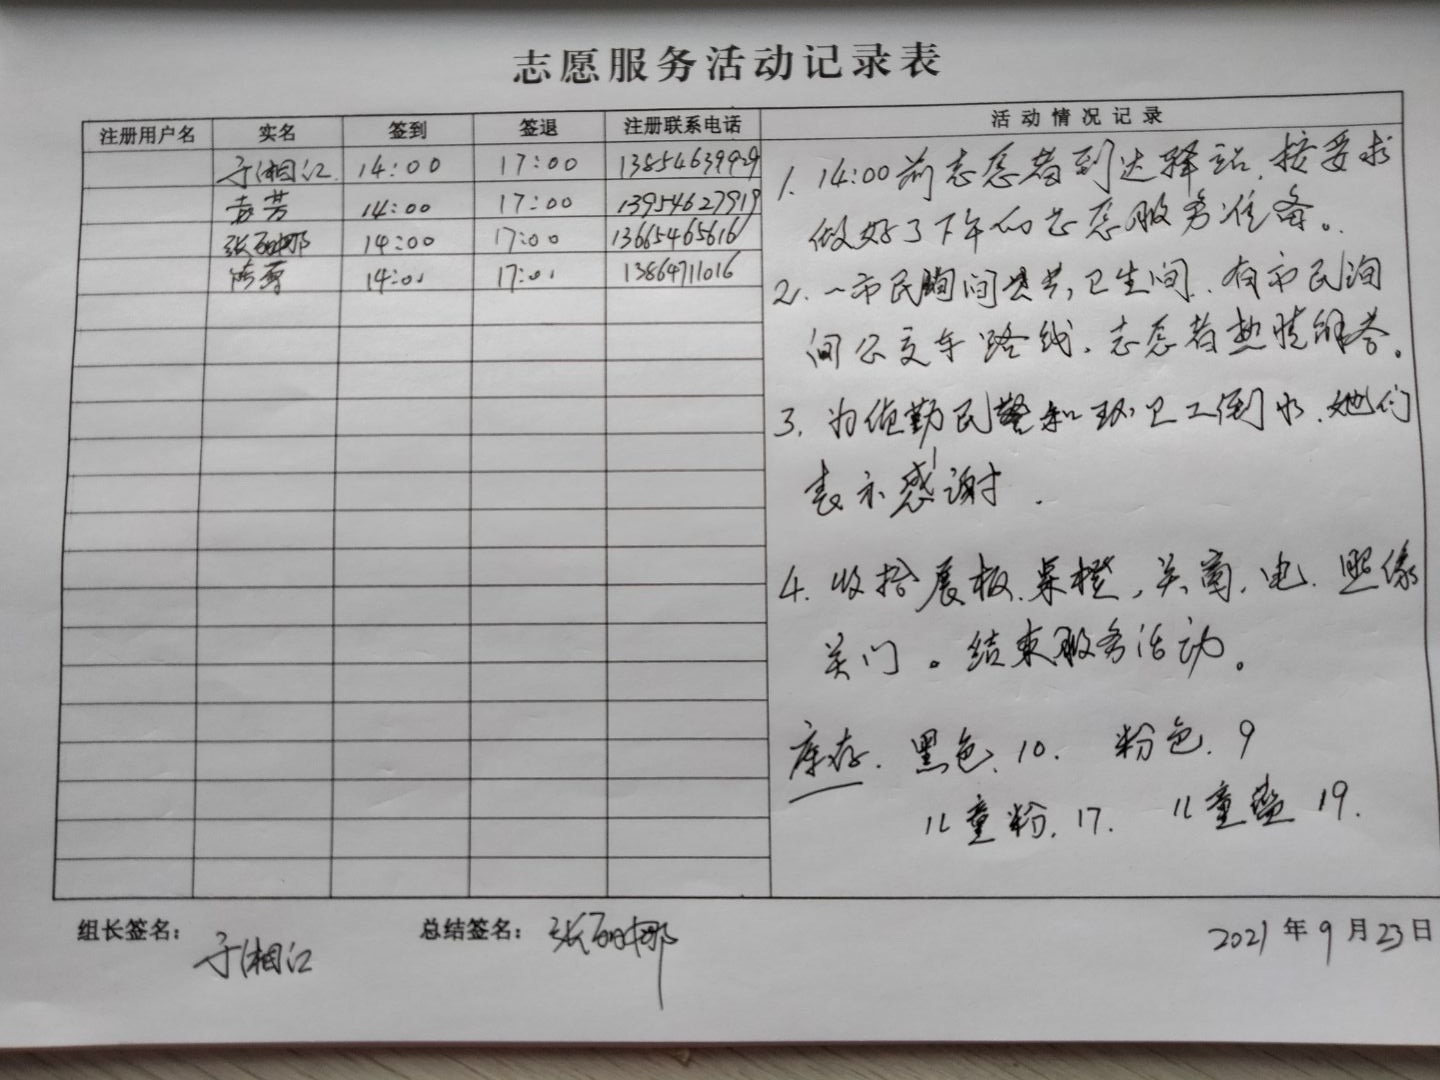 志愿服务活动记录表
注册用户名 实名 签到 签退 注册联系电话 活动情况记录
于湘江 14:00 17:00 13854639929
袁芳 14:00 17:00 13954627919
张丽娜 14:00 17:00 13665465616
14:00 17:00 13864711016
1. 14:00前志愿者到达驿站,按要求
做好了下午的志愿服务准备。
2. 一市民询问公共卫生间,有市民询
问公交车路线,志愿者热情解答。
3. 为值勤民警和环卫工倒水,她们
表示感谢.
4. 收拾展板、桌橙,关窗,电.照像
关门。结束服务活动。
库存. 黑色、10. 粉色. 9
儿童粉. 17. 儿童蓝 19.
组长签名: 于湘江 总结签名: 张丽娜 2021年9月23日